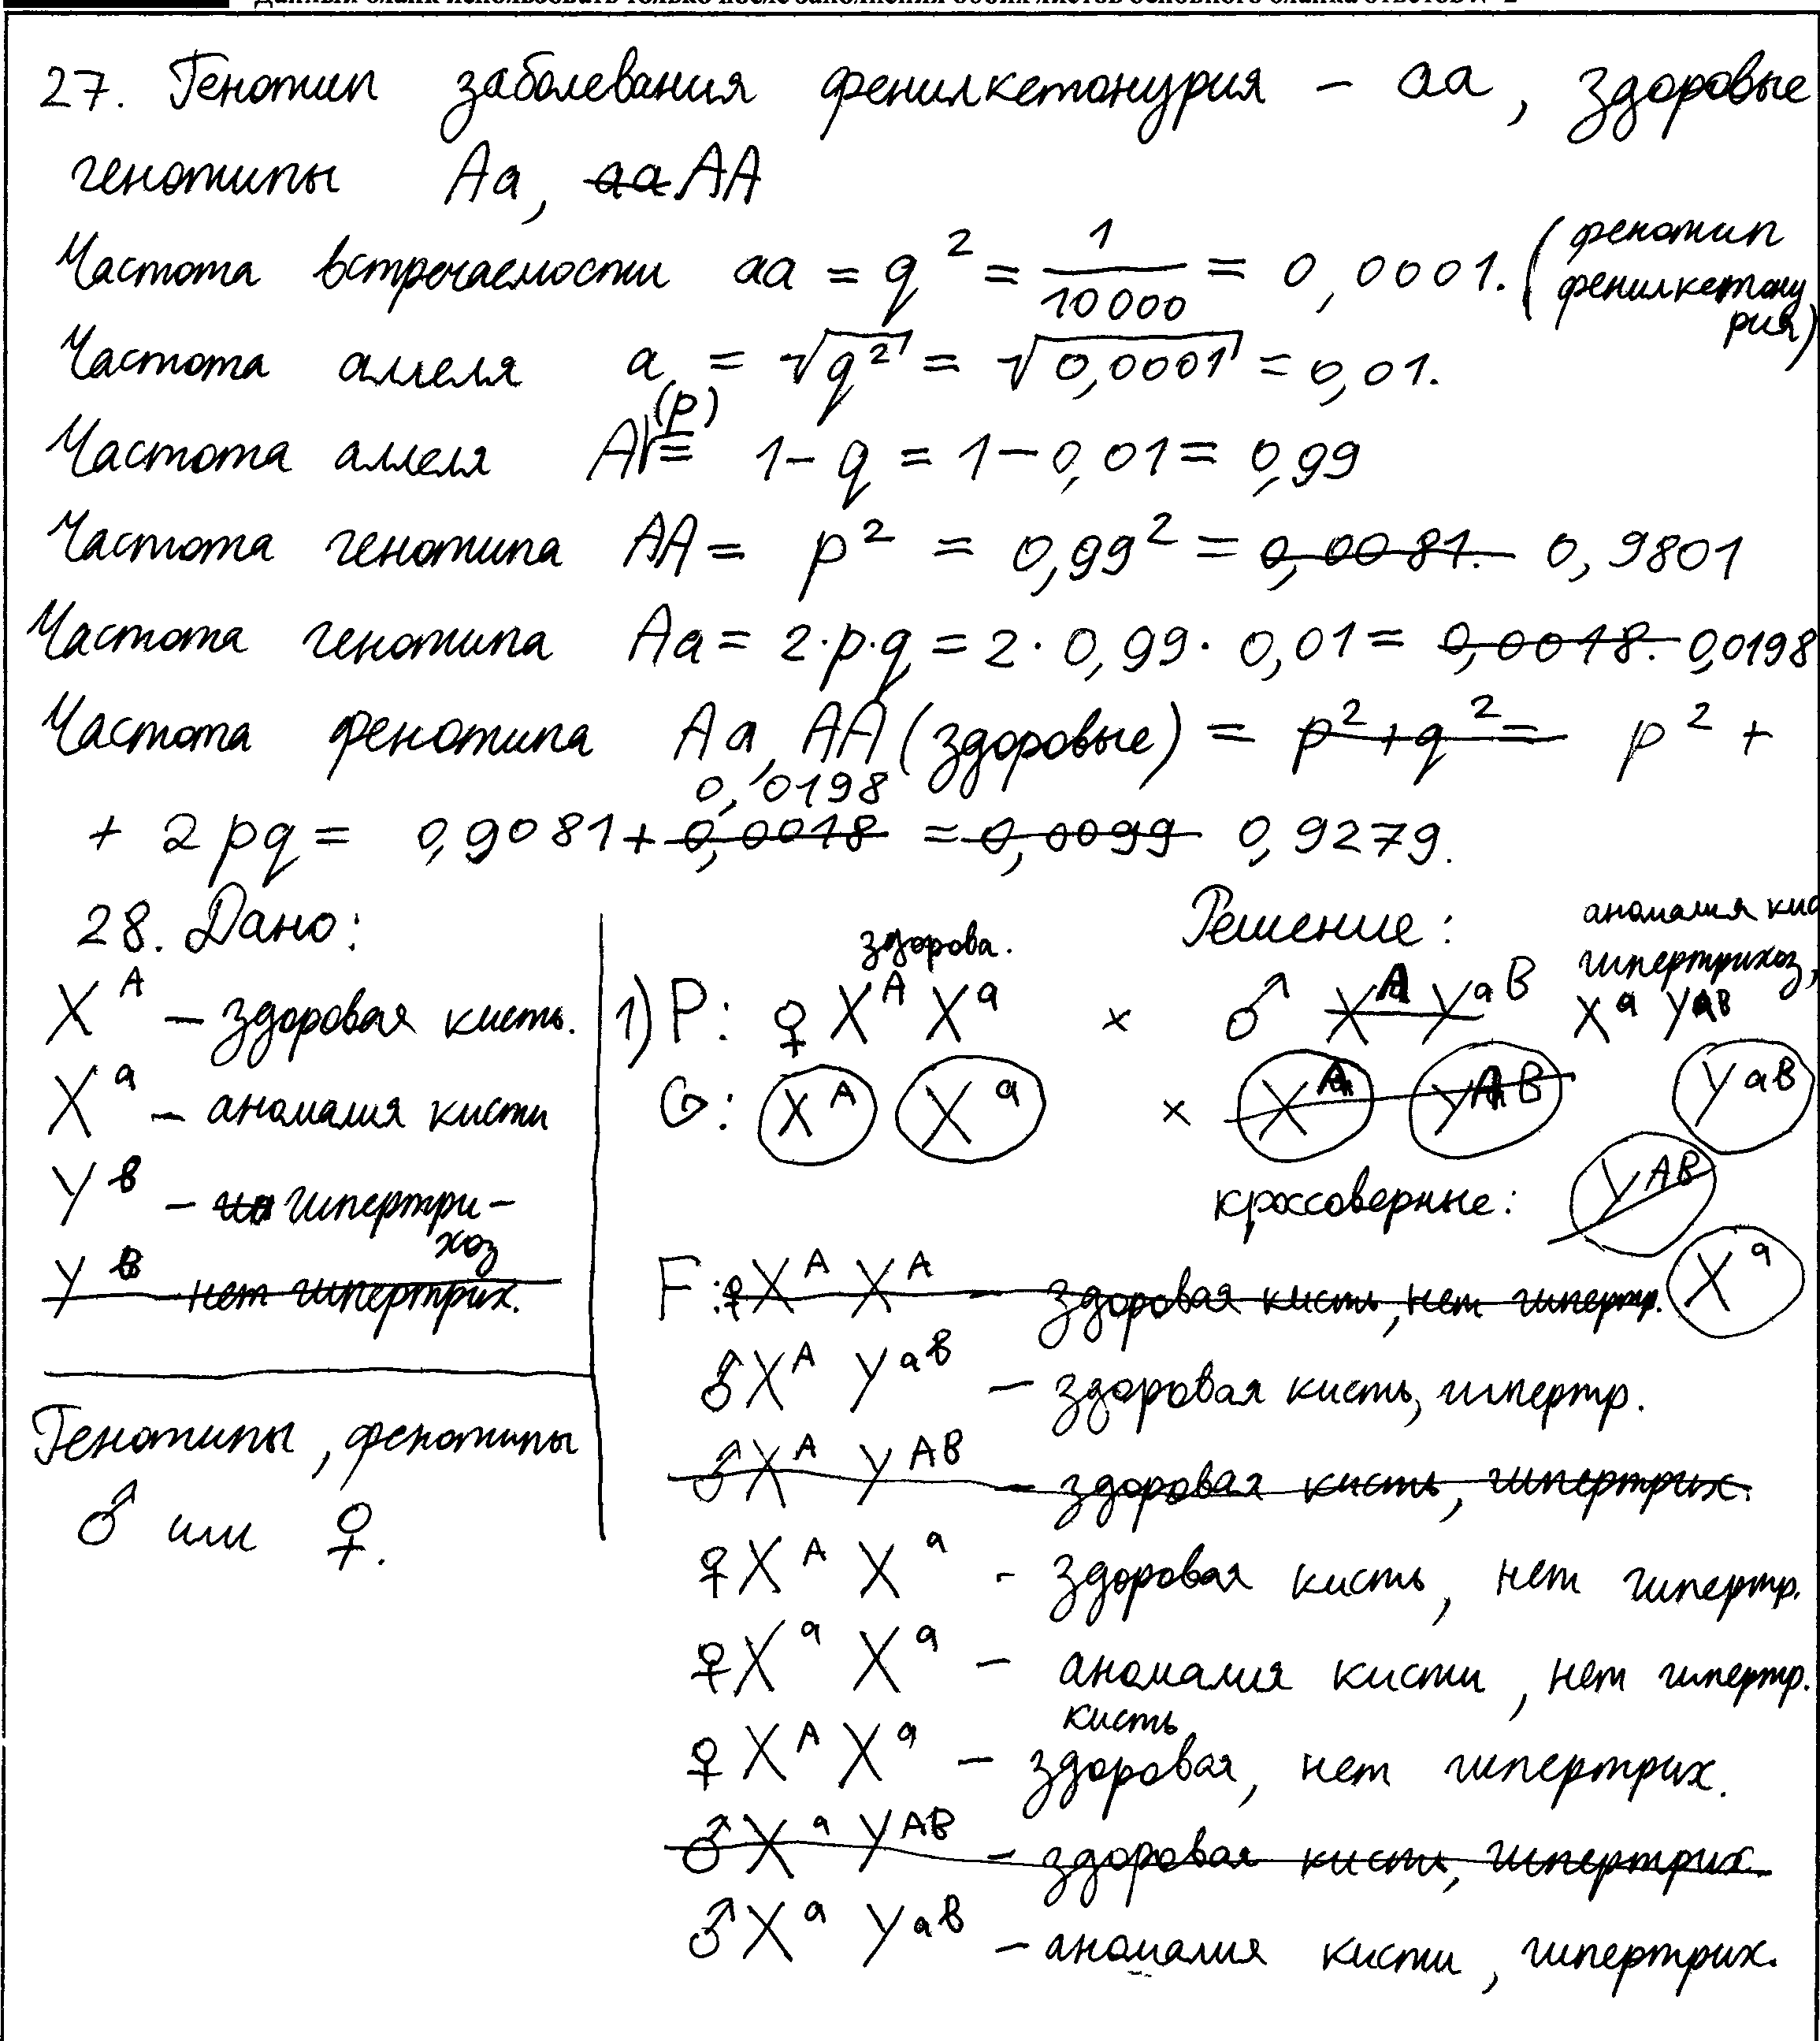 Данный бланк использовать только после заполнения обоих листов основного бланка ответов № 2
27. Генотип заболевания фенилкетонурия – аа, здоровые
генотипы Аа, аа АА
Частота встречаемости аа = q² = 1/10000 = 0,0001. (фенотип фенилкетонурия)
Частота аллеля а = √q² = √0,0001 = 0,01.
Частота аллеля А (p) = 1 – q = 1 – 0,01 = 0,99
Частота генотипа АА = p² = 0,99² = 0,0081. 0,9801
Частота генотипа Аа = 2·p·q = 2·0,99·0,01 = 0,0018. 0,0198
Частота фенотипа Аа, АА (здоровые) = p² + q² = p² +
+ 2pq = 0,9081 + 0,0018 0,0198 = 0,0099 0,9279.
28. Дано:
X^A – здоровая кисть.
X^a – аномалия кисти
Y^в – гипертрихоз
Y^в нет гипертрих.
Генотипы, фенотипы
♂ или ♀.
Решение:
здорова.
аномалия кис
гипертрихоз,
1) P: ♀ X^A X^a × ♂ X^A Y^aB X^a Y^aB
G: X^A X^a × X^A Y^AB Y^aB
кроссоверные: Y^AB
X^a
F: ♀ X^A X^A – здоровая кисть, нет гипертр.
♂ X^A Y^aв – здоровая кисть, гипертр.
♂ X^A Y^AB – здоровая кисть, гипертрих.
♀ X^A X^a - здоровая кисть, нет гипертр.
♀ X^a X^a – аномалия кисти, нет гипертр.
♀ X^A X^a – здоровая кисть, нет гипертрих.
♂ X^a Y^AB – здоровая кисти, гипертрих.
♂ X^a Y^aв – аномалия кисти, гипертрих.